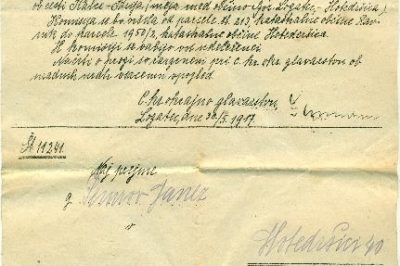 ob cesti Kalce - Hruśica / meja med občino Gor. Logatec - Hotedršica /
Komisija se bo vršila od parcele št. 213, katastralne občine Rav-
nik do parcele 1950/2, katastralne občine Hotedršica.
K komisiji se vabijo vsi udeleženci.
Načrti o progi so razgrnjeni pri c. kr. okr. glavarstvu ob
uradnih urah vsacemu vpogled.
C. kr. okrajno glavarstvo
Logatec, dne 30/3. 1907.
Št 11241.
Naj prejme
g Janez
v
Hotedršici 40